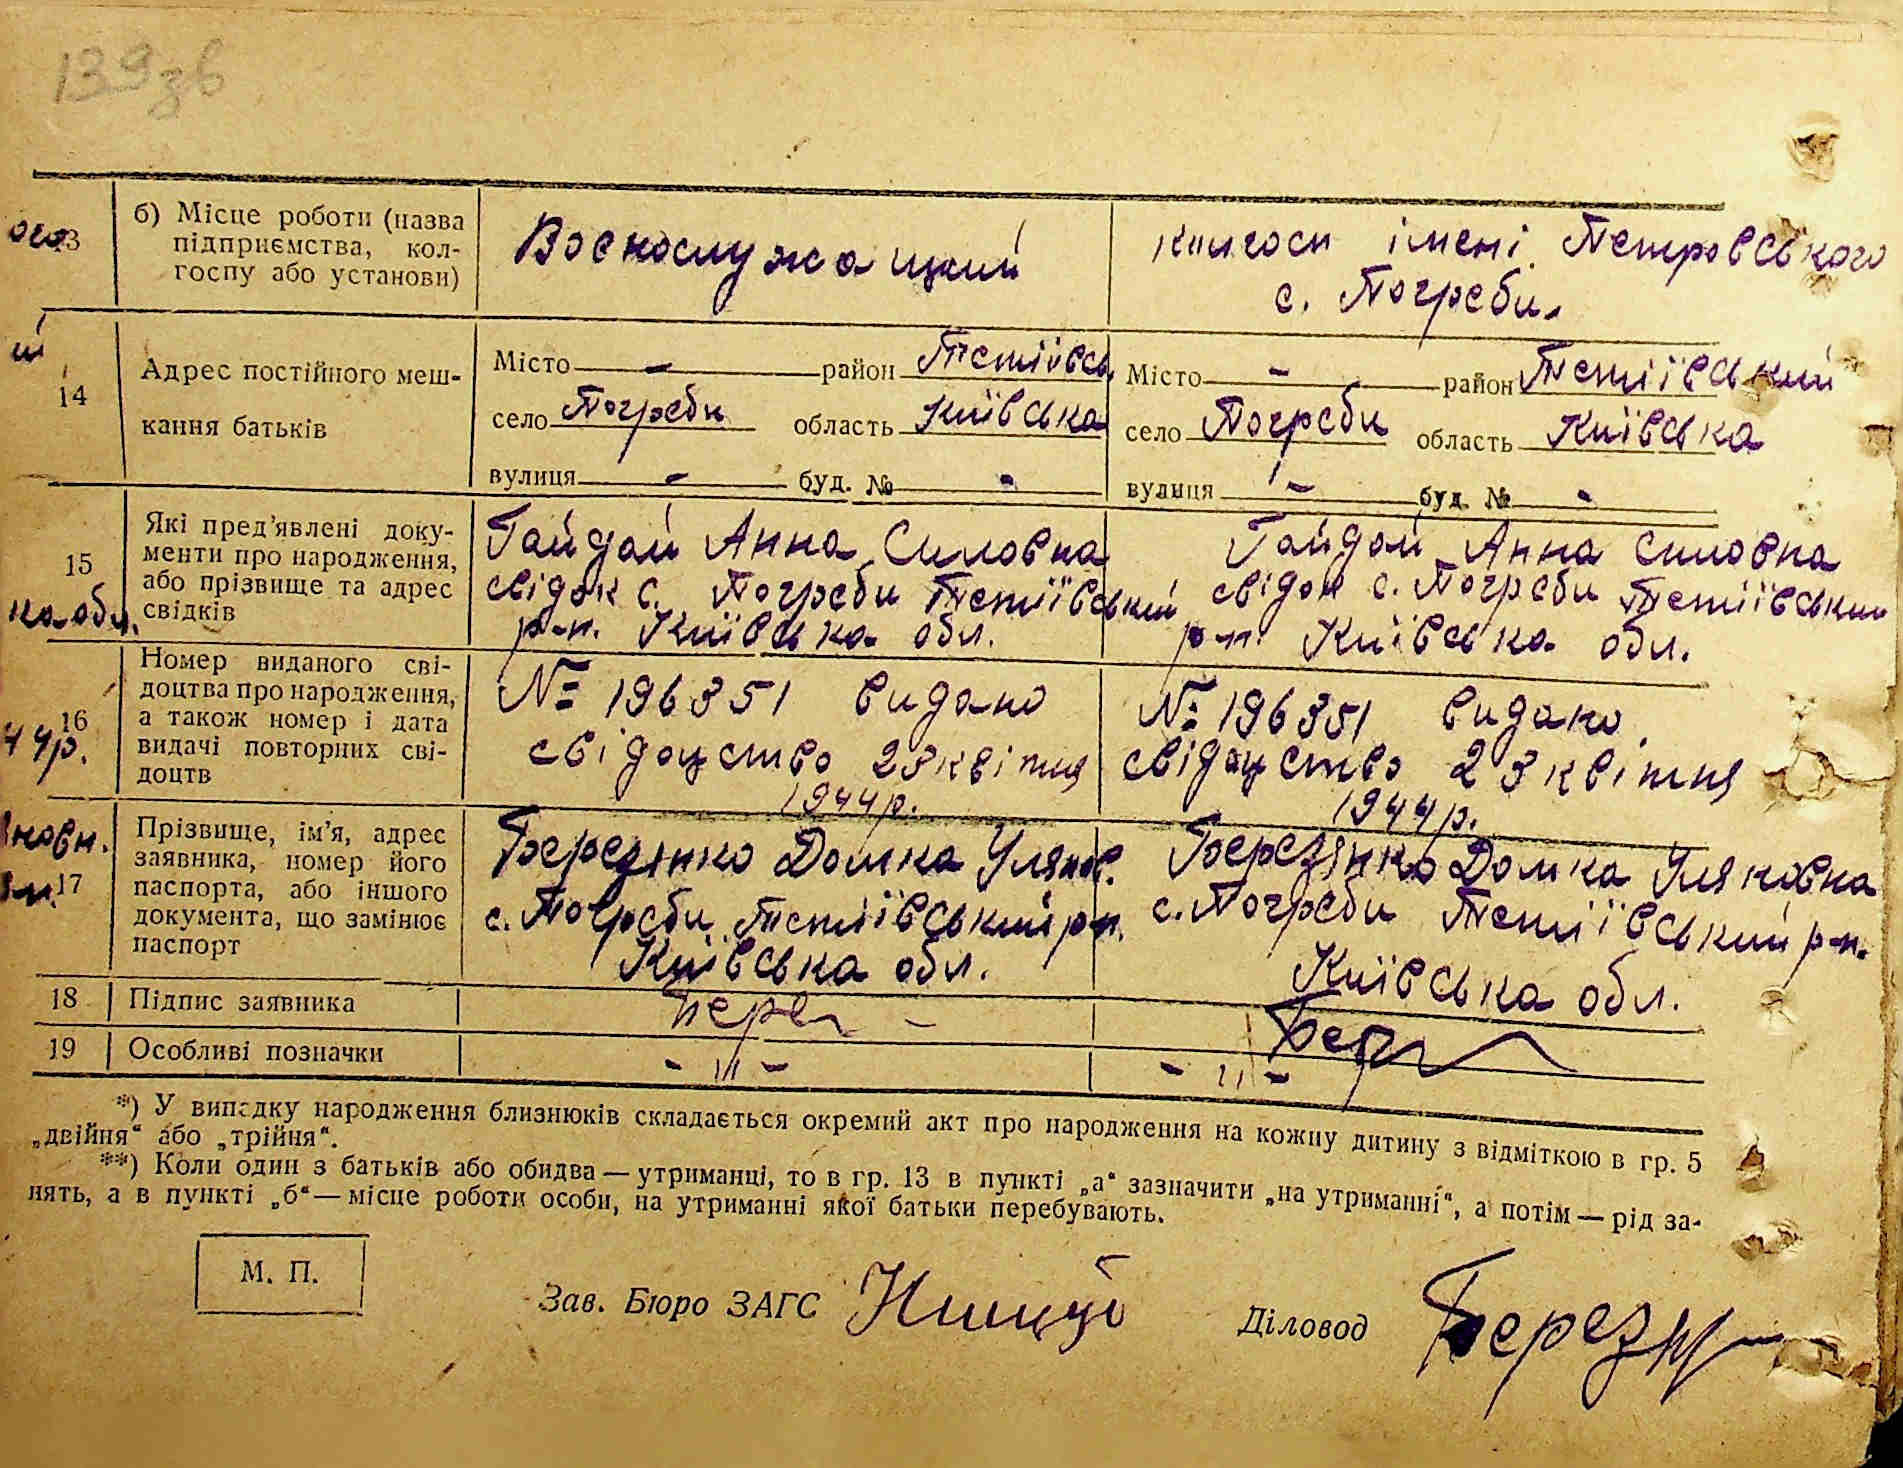 139зв
б) Місце роботи (назва підприємства, колгоспу або установи)
Воєнослужащий
колгосп імені Петровського
с. Погреби.
14
Адрес постійного меш-
кання батьків
Місто - район Тетіївськ
село Погреби область Київська
вулиця - буд. № -
Місто - район Тетіївський
село Погреби область Київська
вулиця - буд. № -
15
Які пред'явлені доку-
менти про народження,
або прізвище та адрес
свідків
Гайдай Анна Силовна
свідок с. Погреби Тетіївський
р-н. Київська обл.
Гайдай Анна Силовна
свідок с. Погреби Тетіївський
р-н. Київська обл.
ка обл.
16
Номер виданого сві-
доцтва про народження,
а також номер і дата
видачі повторних сві-
доцтв
№ 196351 видано
свідоцство 23 квітня
1944р.
№ 196351 видано
свідоцство 23 квітня
1944р.
44р.
17
Прізвище, ім'я, адрес
заявника, номер його
паспорта, або іншого
документа, що замінює
паспорт
Березянко Домка Улянов.
с. Погреби Тетіївський р-н.
Київська обл.
Березянко Домка Уляновна
с. Погреби Тетіївський р-н.
Київська обл.
18 Підпис заявника
19 Особливі позначки
- " -
- " -
*) У випадку народження близнюків складається окремий акт про народження на кожну дитину з відміткою в гр. 5
„двійня“ або „трійня“.
**) Коли один з батьків або обидва — утриманці, то в гр. 13 в пункті „а“ зазначити „на утриманні“, а потім — рід за-
нять, а в пункті „б“ — місце роботи особи, на утриманні якої батьки перебувають.
М. П.
Зав. Бюро ЗАГС
Діловод